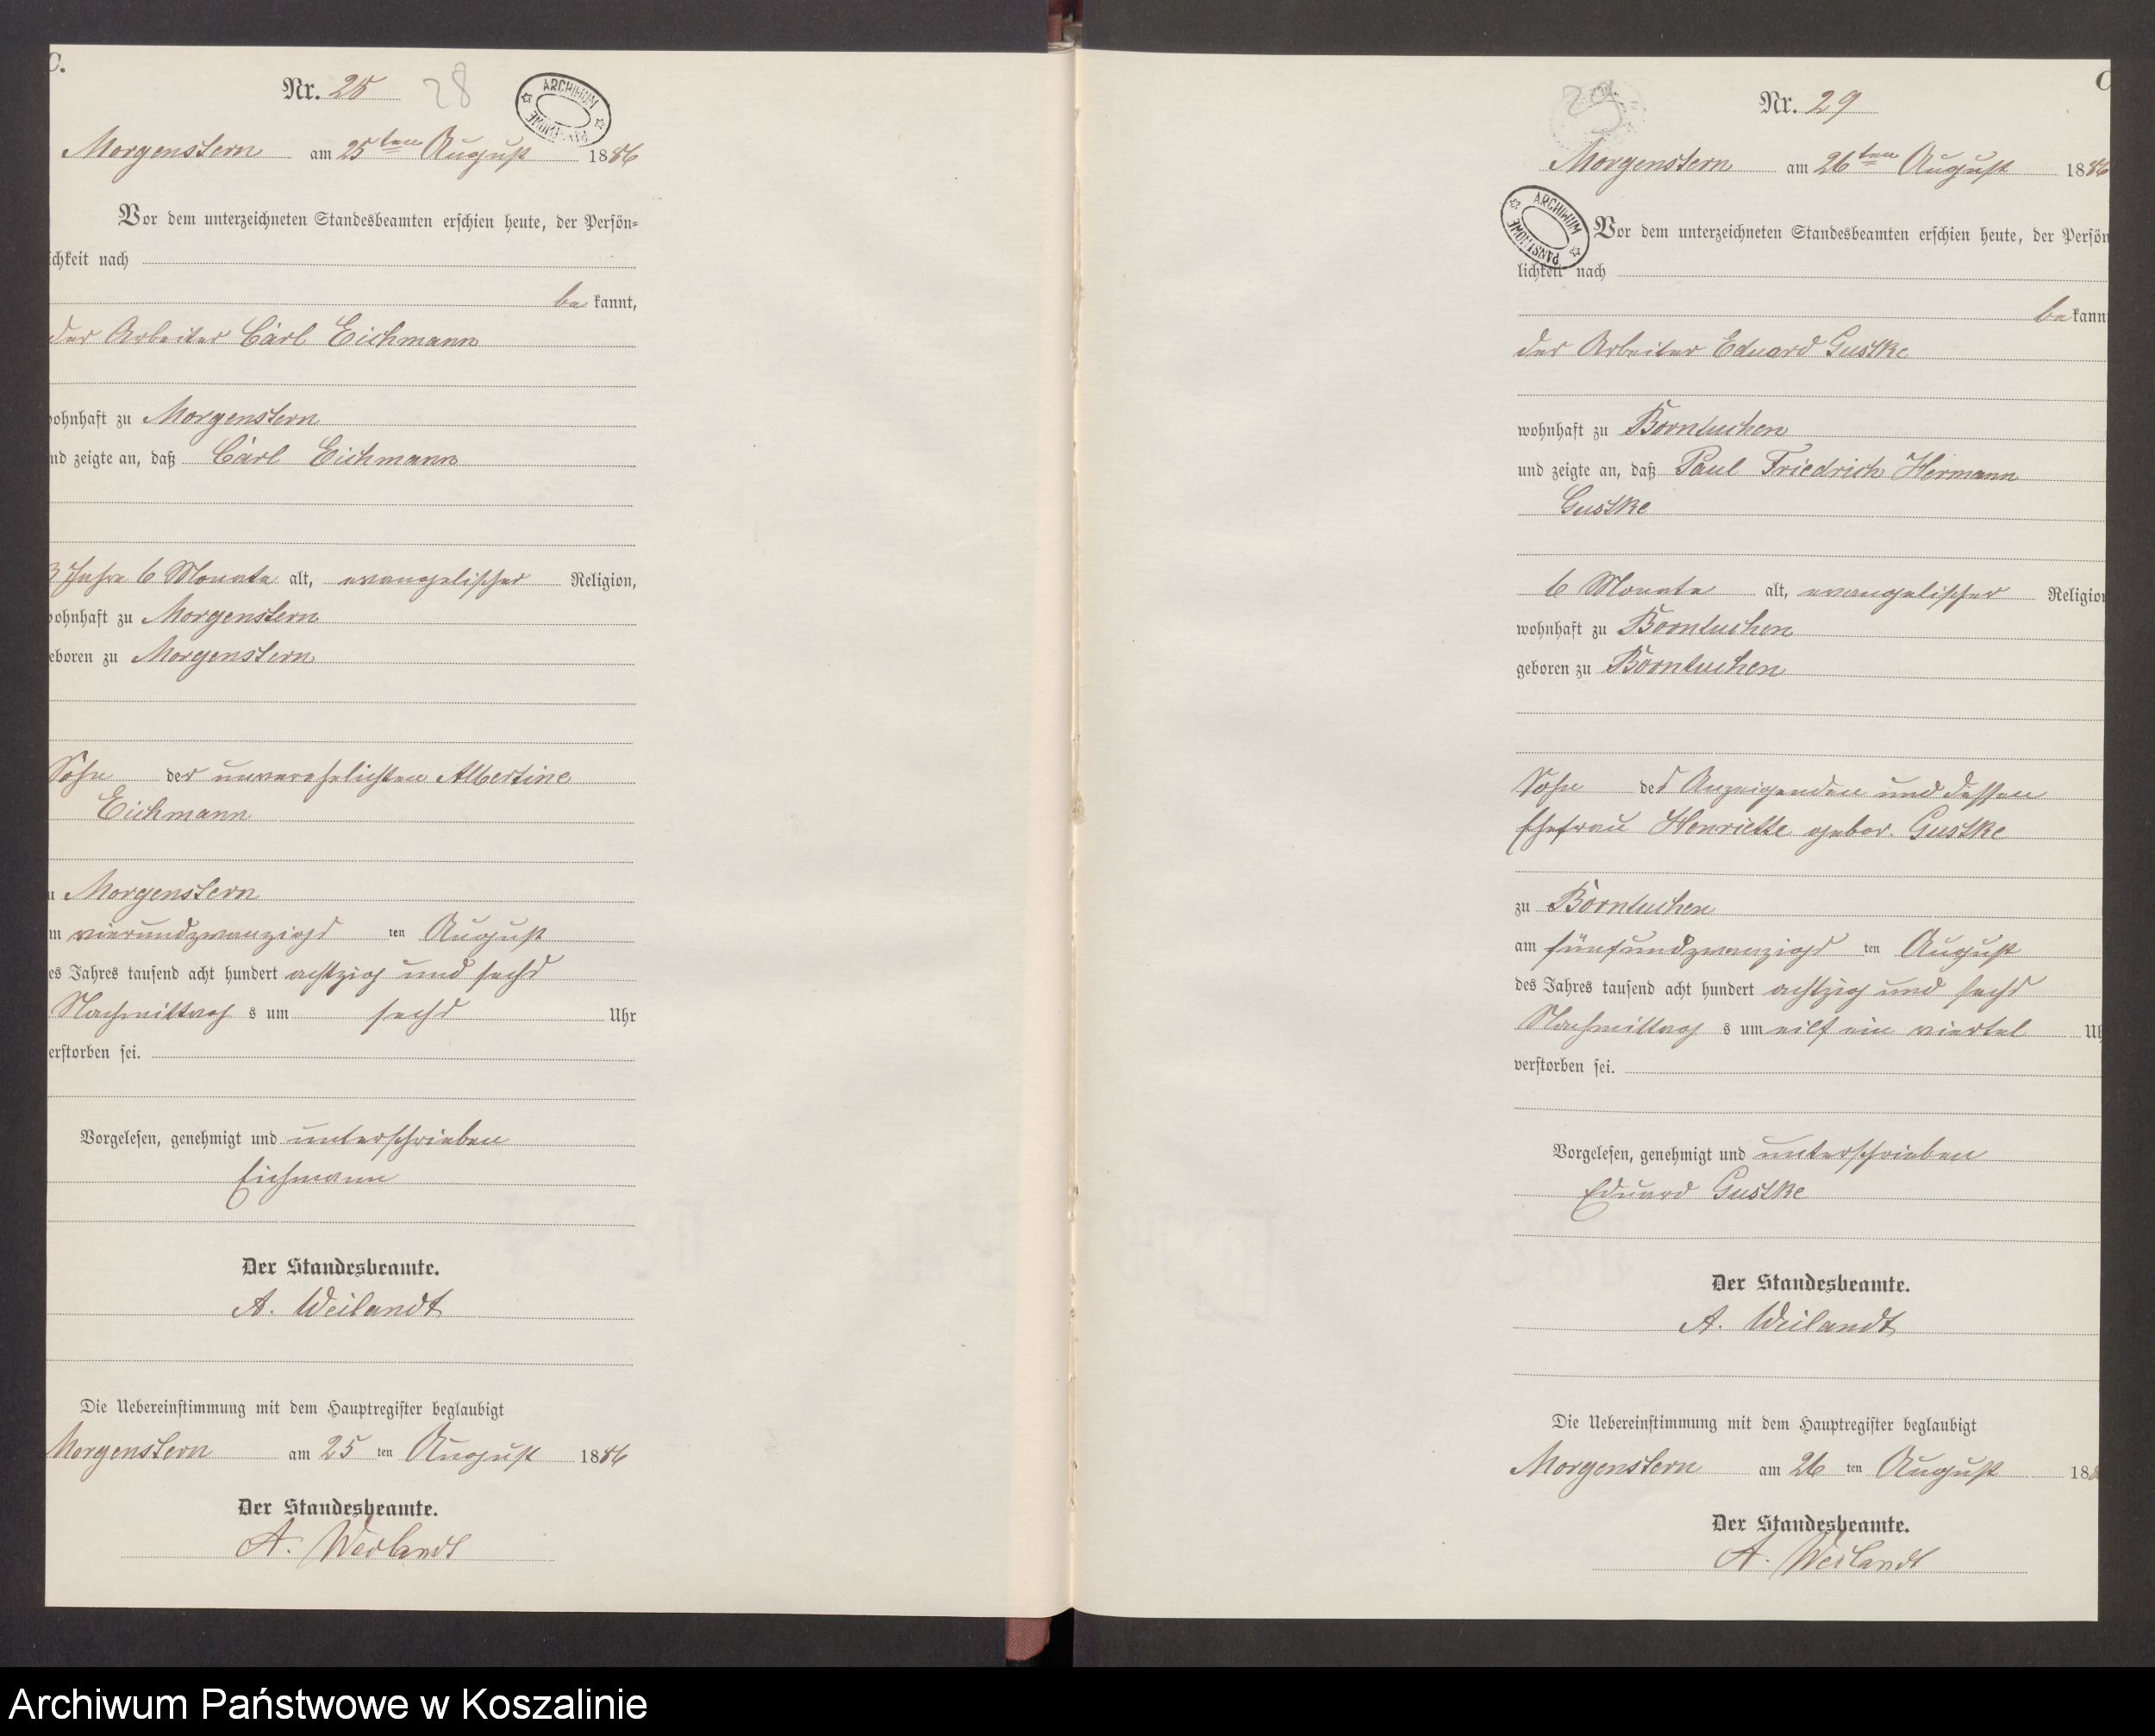 C.
Nr. 28 28
ARCHIWUM PAŃSTWOWE
Morgenstern am 25ten August 1886
Vor dem unterzeichneten Standesbeamten erschien heute, der Persön=
ichkeit nach
be kannt,
der Arbeiter Carl Eichmann
wohnhaft zu Morgenstern
nd zeigte an, daß Carl Eichmann
3 Jahre 6 Monate alt, evangelischer Religion,
wohnhaft zu Morgenstern
eboren zu Morgenstern
Sohn der unverehelichten Albertine
Eichmann
u Morgenstern
m vierundzwanzigs ten August
es Jahres tausend acht hundert achtzig und sechs
Nachmittag s um sechs Uhr
erstorben sei.
Vorgelesen, genehmigt und unterschrieben
Eichmann
Der Standesbeamte.
A. Weilandt
Die Uebereinstimmung mit dem Hauptregister beglaubigt
Morgenstern am 25 ten August 1886
Der Standesbeamte.
A. Weilandt
C
29 Nr. 29
Morgenstern am 26ten August 1886
ARCHIWUM PAŃSTWOWE
Vor dem unterzeichneten Standesbeamten erschien heute, der Persön
lichkeit nach
be kann
der Arbeiter Eduard Gustke
wohnhaft zu Borntuchen
und zeigte an, daß Paul Friedrich Hermann
Gustke
6 Monate alt, evangelischer Religion
wohnhaft zu Borntuchen
geboren zu Borntuchen
Sohn des Anzeigenden und dessen
Ehefrau Henriette gebor. Gustke
zu Borntuchen
am fünfundzwanzigs ten August
des Jahres tausend acht hundert achtzig und sechs
Nachmittag s um eilf ein viertel Uh
verstorben sei.
Vorgelesen, genehmigt und unterschrieben
Eduard Gustke
Der Standesbeamte.
A. Weilandt
Die Uebereinstimmung mit dem Hauptregister beglaubigt
Morgenstern am 26 ten August 188
Der Standesbeamte.
A. Weilandt
Archiwum Państwowe w Koszalinie